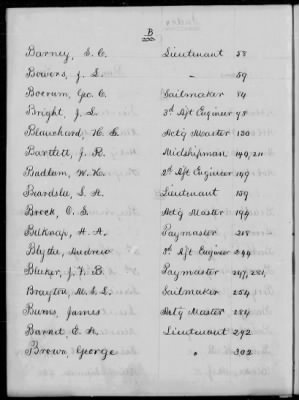 B
Barney, S. C. Lieutenant 58
Bowers, J. L. " 59
Boerum, Geo. C. Sailmaker 84
Bright, J. L. 3d Asst Engineer 98
Blanchard, H. S. Actg Master 130
Bartlett, J. R. Midshipman 140, 211
Badlam, W. H. 2d Asst Engineer 149
Beardslee, L. A. Lieutenant 159
Breck, C. S. Actg Master 194
Belknap, A. A. Paymaster 218
Blythe, Andrew 3d Asst Engineer 244
Bleeker, J. V. B. Paymaster 247, 281,
Brayton, M. S. L. Sailmaker 254
Burns, James Actg Master 284
Barnet, E. A. Lieutenant 292
Brown, George " 302